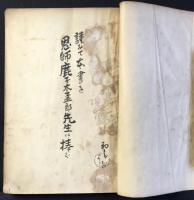 謹みて本書を
恩師鹿子木孟郎先生に捧ぐ